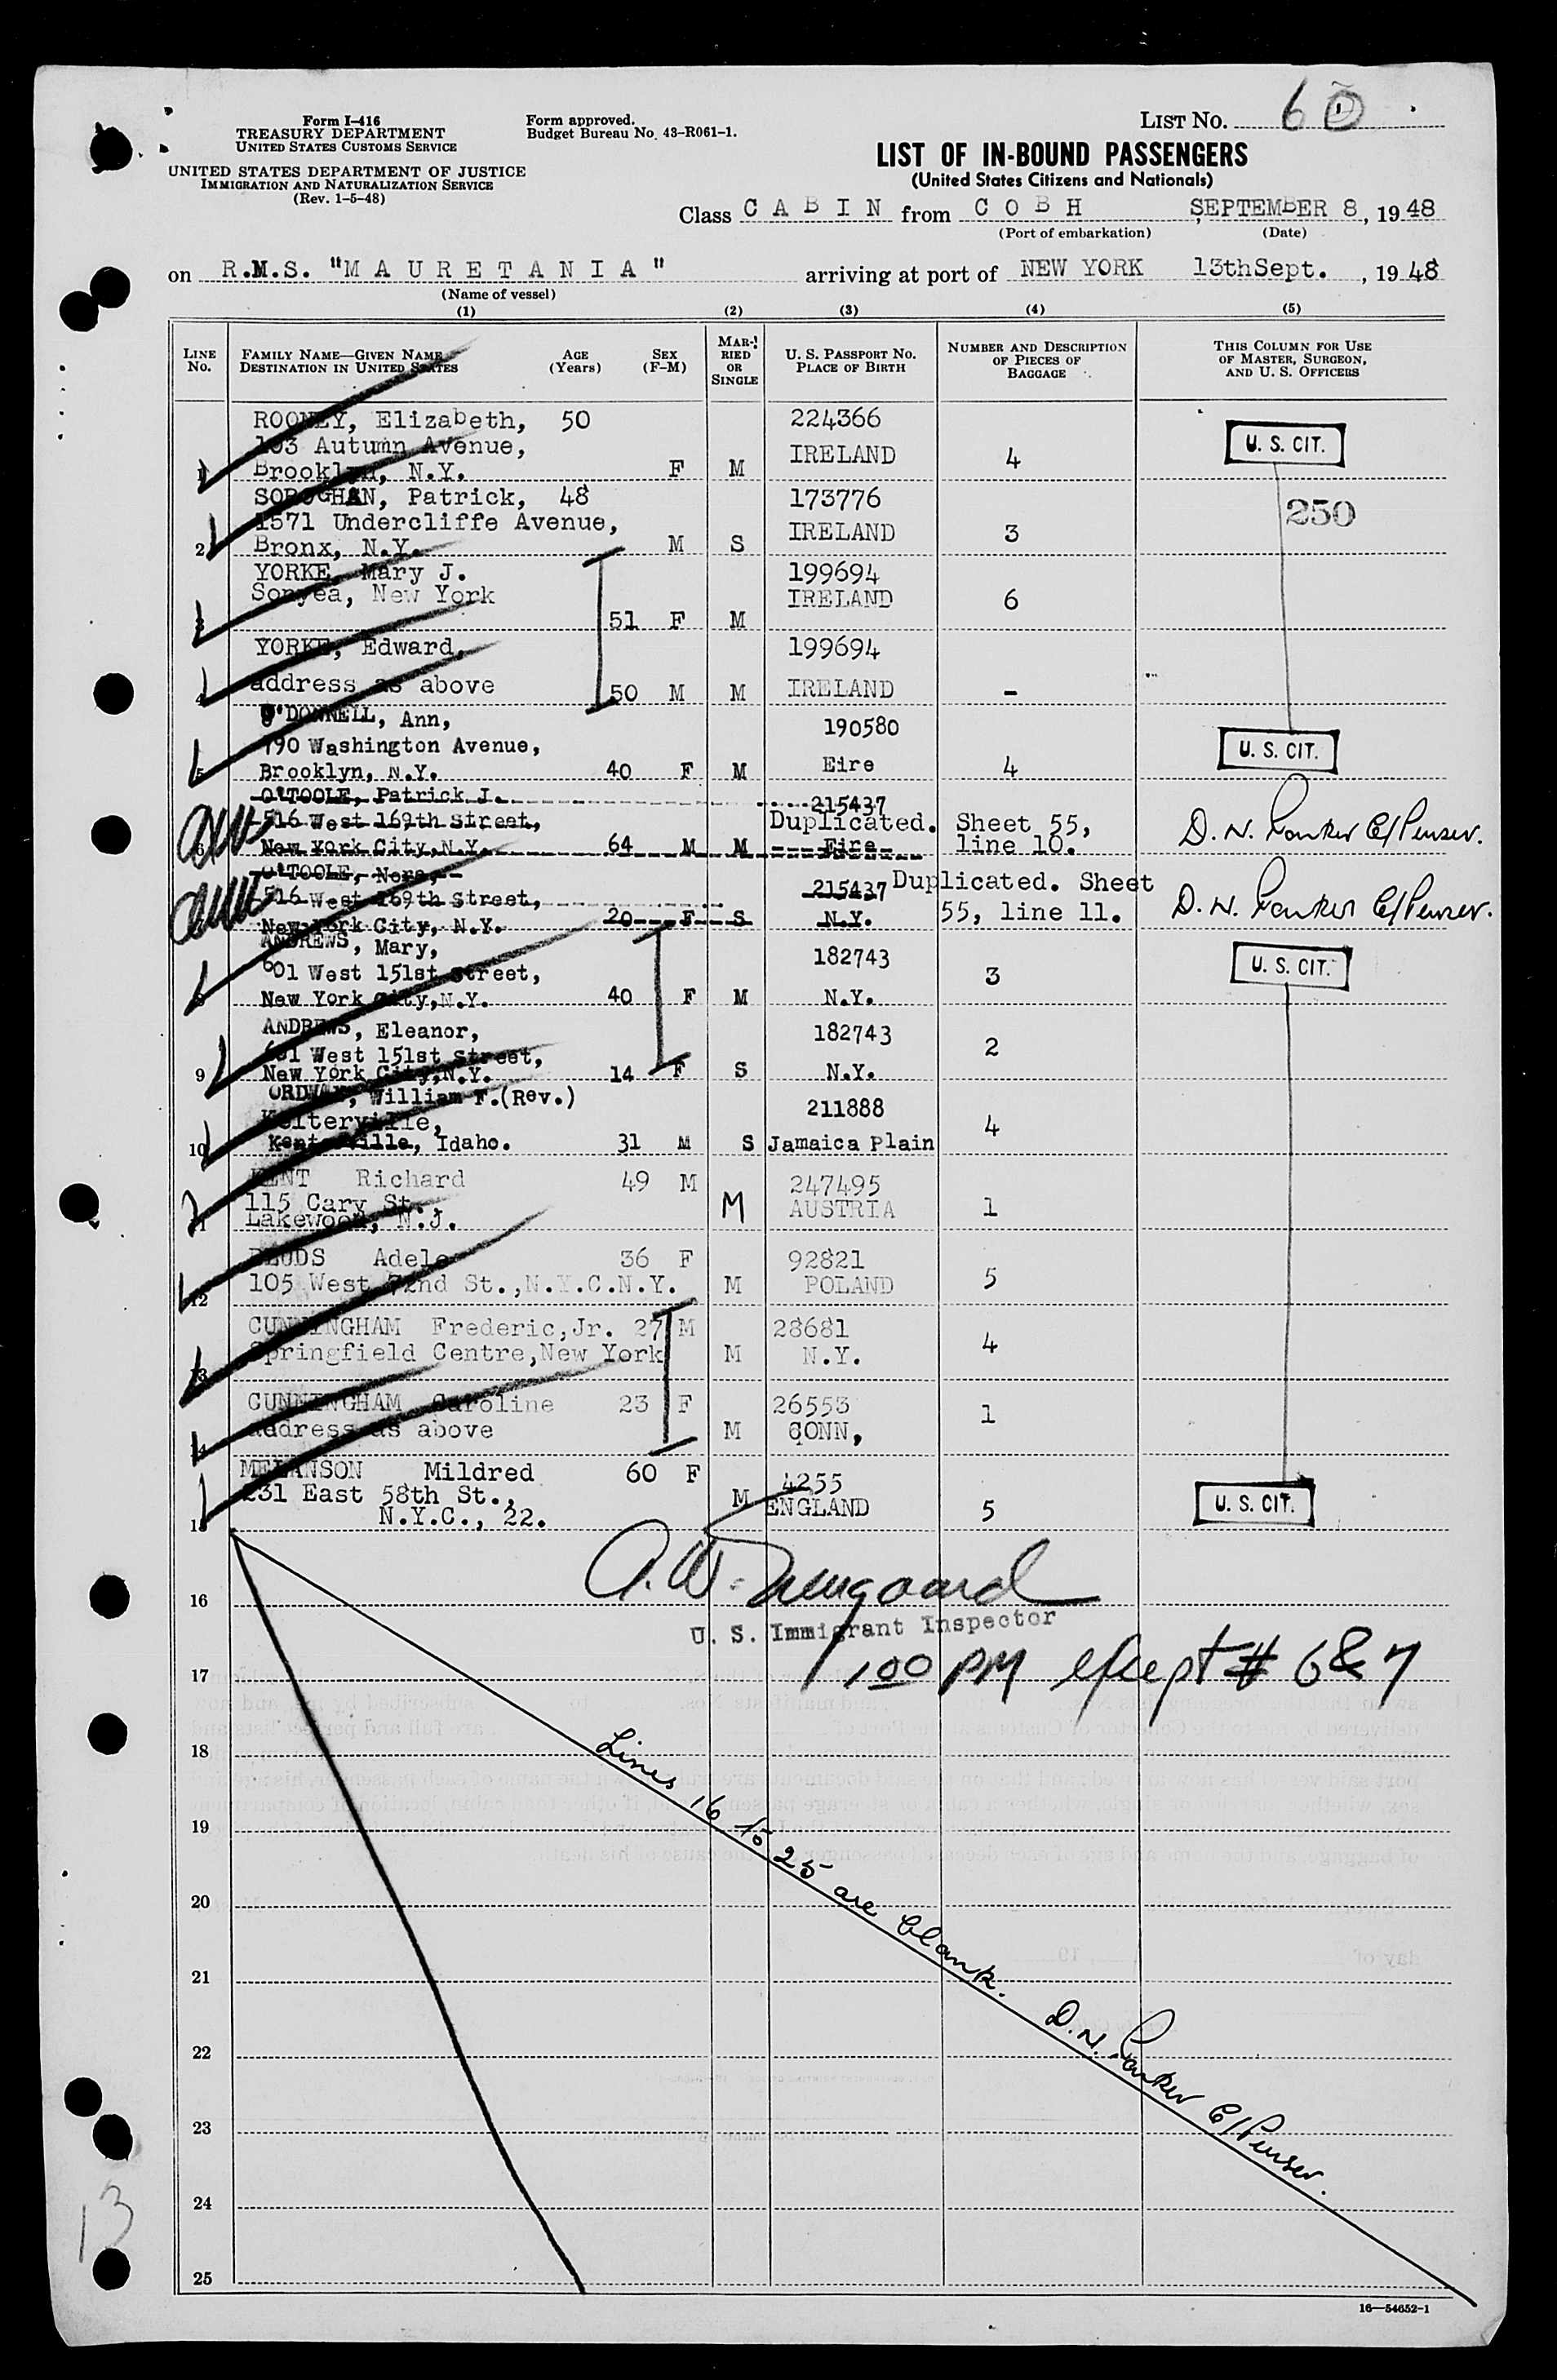 Form I-416
TREASURY DEPARTMENT
UNITED STATES CUSTOMS SERVICE
UNITED STATES DEPARTMENT OF JUSTICE
IMMIGRATION AND NATURALIZATION SERVICE
(Rev. 1-5-48)
Form approved.
Budget Bureau No. 43-R061-1.
LIST No. 60
LIST OF IN-BOUND PASSENGERS
(United States Citizens and Nationals)
Class CABIN from COBH SEPTEMBER 8, 1948
(Port of embarkation) (Date)
on R.M.S. "MAURETANIA" arriving at port of NEW YORK 13thSept., 1948
(Name of vessel)
(1) (2) (3) (4) (5)
LINE No. FAMILY NAME—GIVEN NAME DESTINATION IN UNITED STATES AGE (Years) SEX (F-M) MARRIED OR SINGLE U. S. PASSPORT No. PLACE OF BIRTH NUMBER AND DESCRIPTION OF PIECES OF BAGGAGE THIS COLUMN FOR USE OF MASTER, SURGEON, AND U. S. OFFICERS
ROONEY, Elizabeth, 50 224366
103 Autumn Avenue, IRELAND 4 U. S. CIT.
1 Brooklyn, N.Y. F M
SOROGHAN, Patrick, 48 173776 250
1571 Undercliffe Avenue, IRELAND 3
2 Bronx, N.Y. M S
YORKE, Mary J. 199694
Sonyea, New York IRELAND 6
3 51 F M
YORKE, Edward, 199694
4 address as above 50 M M IRELAND -
O'DONNELL, Ann, 190580
790 Washington Avenue, Eire U. S. CIT.
5 Brooklyn, N.Y. 40 F M 4
O'TOOLE, Patrick J. 215437
516 West 169th Street, Duplicated. Sheet 55,
6 New York City, N.Y. 64 M M Eire line 10. D. N. C/Purser.
O'TOOLE, Nora, 215437 Duplicated. Sheet
516 West 169th Street,
7 New York City, N.Y. 20 F S N.Y. 55, line 11. D. N. C/Purser.
ANDREWS, Mary, 182743
601 West 151st Street, 3 U. S. CIT.
8 New York City, N.Y. 40 F M N.Y.
ANDREWS, Eleanor, 182743
601 West 151st Street, 2
9 New York City, N.Y. 14 F S N.Y.
ORDWAY, William F.(Rev.) 211888
Kolterville, 4
10 Kenterville, Idaho. 31 M S Jamaica Plain
KENT Richard 49 M 247495
115 Cary St., M AUSTRIA 1
11 Lakewood, N.J.
Adele 36 F 92821
12 105 West 72nd St.,N.Y.C.N.Y. M POLAND 5
CUNNINGHAM Frederic,Jr. 27 M 28681
13 Springfield Centre,New York M N.Y. 4
CUNNINGHAM Caroline 23 F 26553 1
14 address as above M CONN,
MELANSON Mildred 60 F 4255
231 East 58th St., M ENGLAND 5 U. S. CIT.
15 N.Y.C., 22.
16
U. S. Immigrant Inspector
17 1 00 PM except # 6 & 7
18
Lines 16 to 25 are blank. D. N. C/Purser.
19
20
21
22
23
24
25
13
16—54652-1